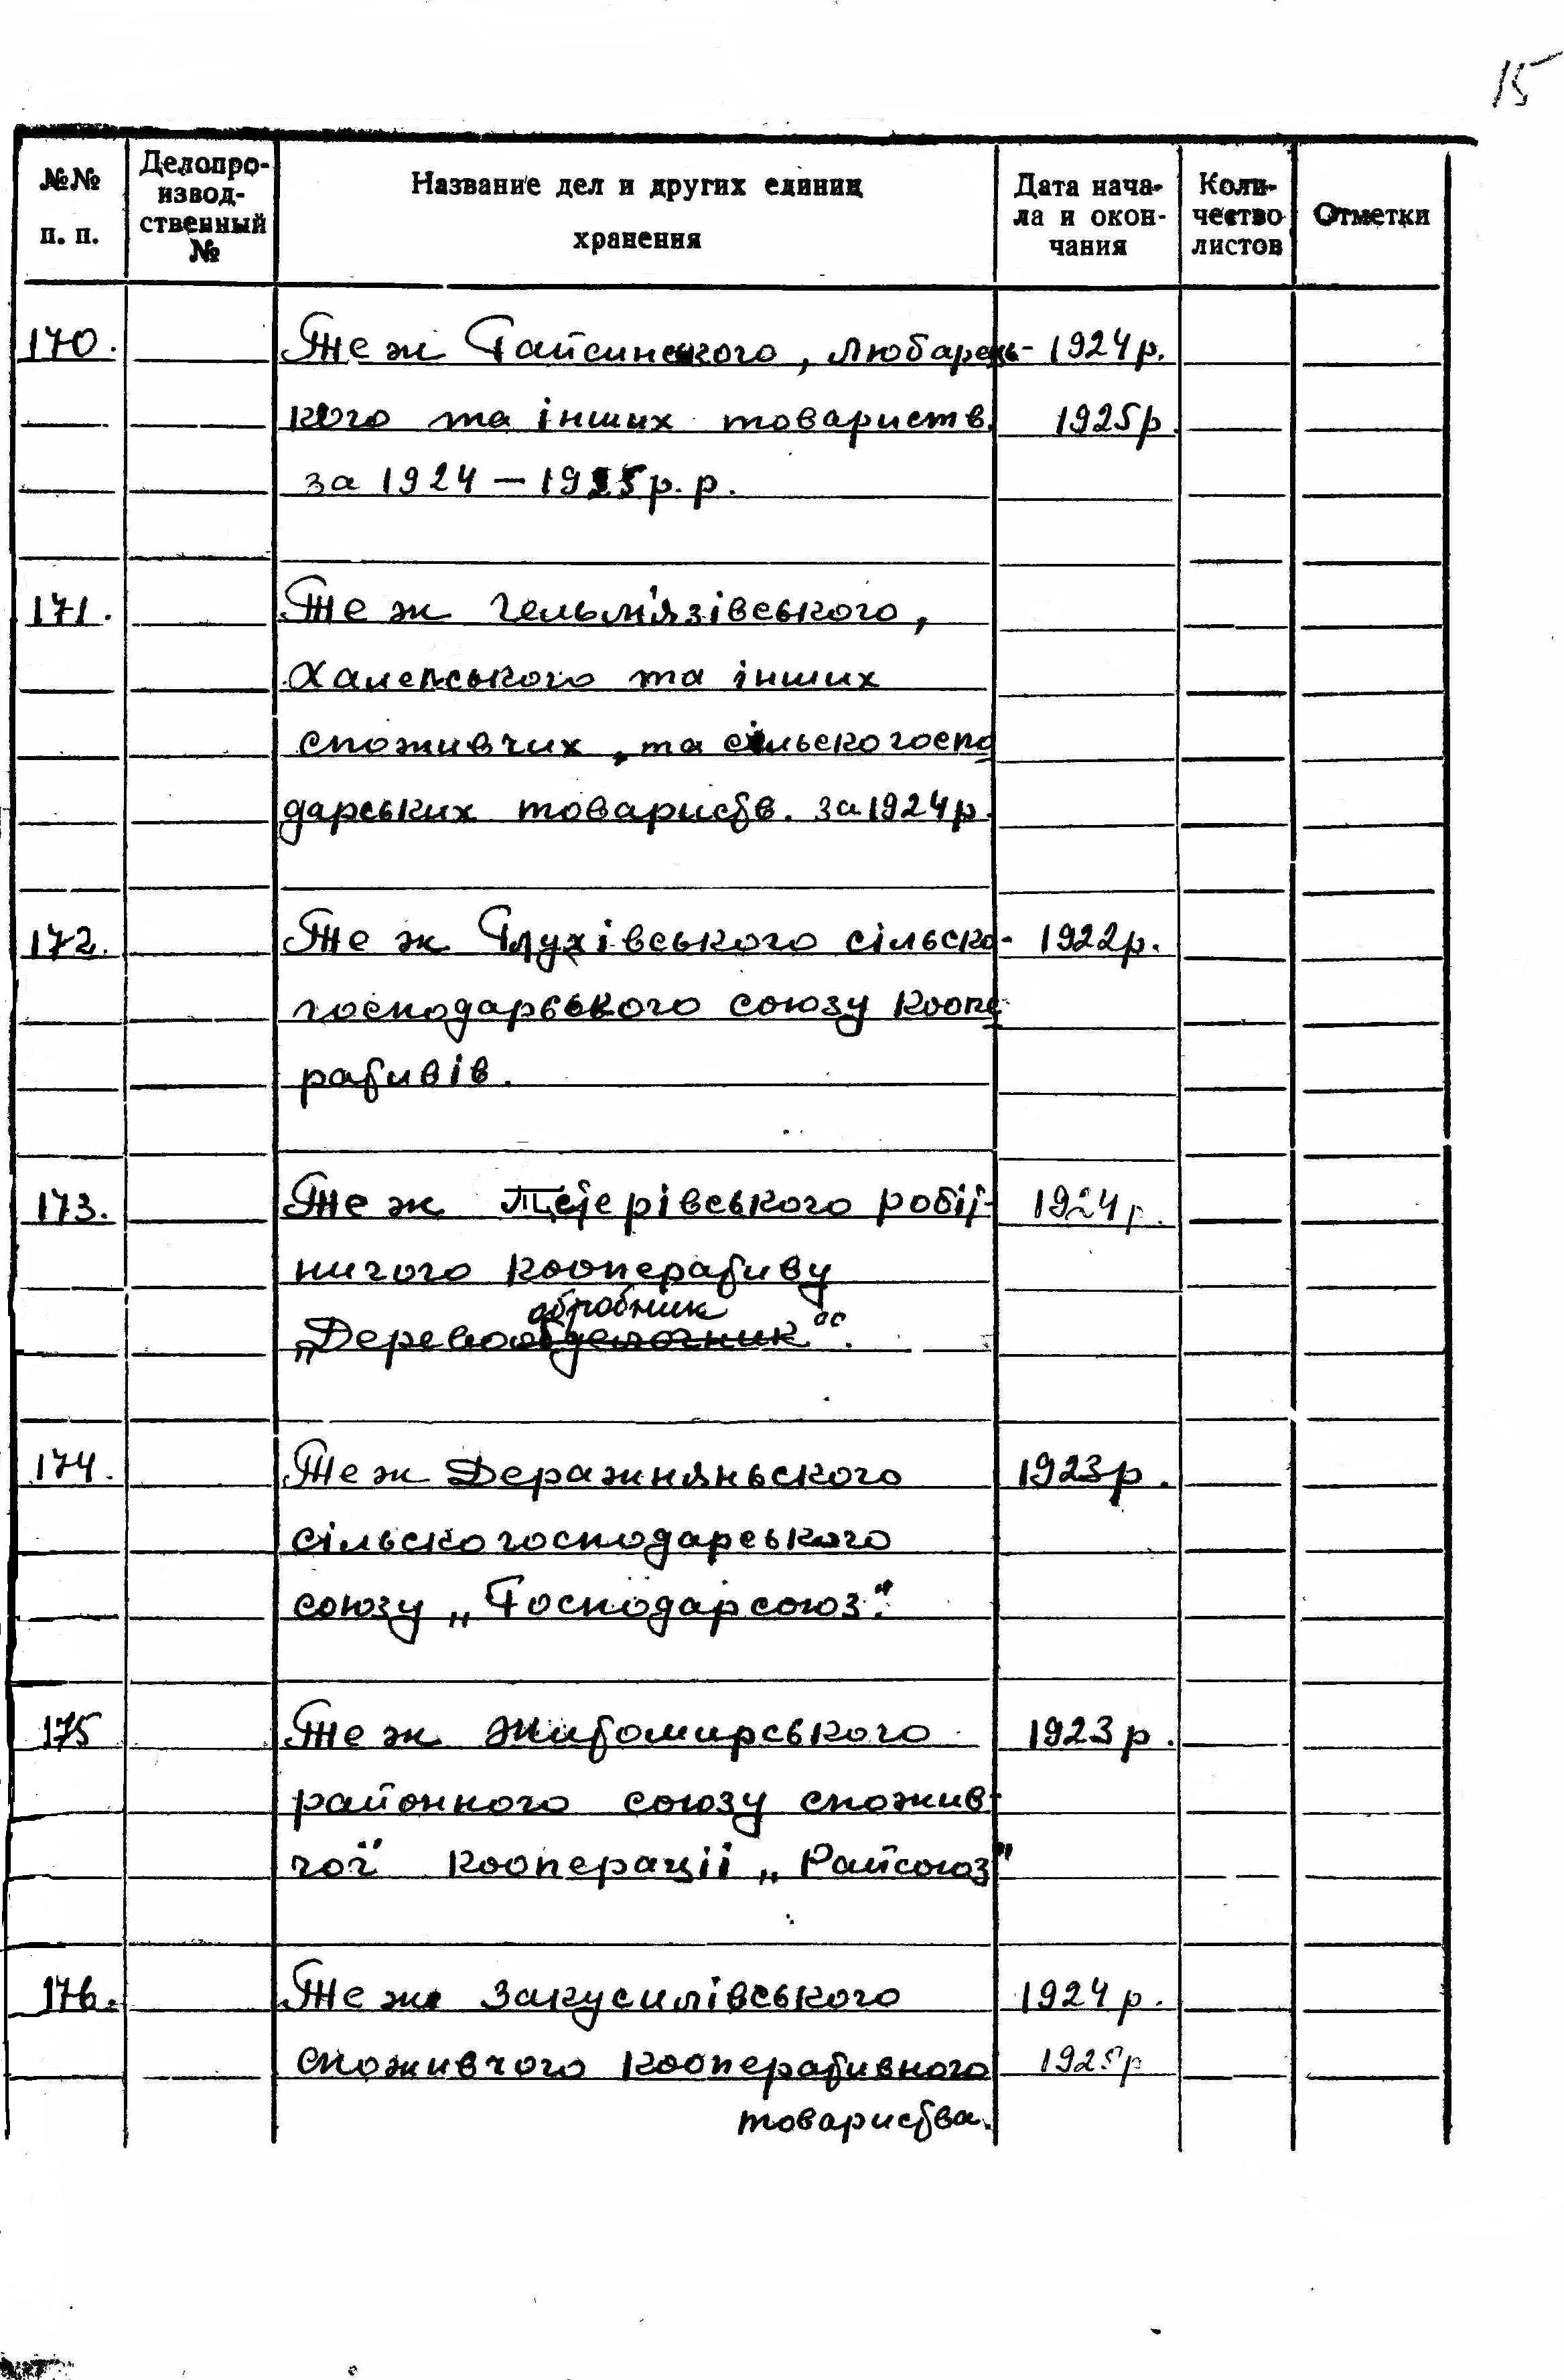 15
№№ п. п.
Делопро-
извод-
ственный
№
Название дел и других единиц
хранения
Дата нача-
ла и окон-
чания
Коли-
чество
листов
Отметки
170. Те ж Гайсинского, Любарець- 1924р.
кого та інших товариств. 1925р.
за 1924 – 1925р.р.
171. Те ж Гельм'язівського,
Халепського та інших
споживчих, та сільскогоспо
дарських товариств. за 1924р.
172. Те ж Глухівського сільско- 1922р.
господарського союзу коопе
ративів.
173. Те ж Тетерівського робіт- 1924р.
ничого кооперативу
обробник
„Деревообделочник".
174. Те ж Деражняньского 1923р.
сільскогосподарського
союзу „Господарсоюз".
175 Те ж Житомирського 1923р.
районного союзу спожив-
чої кооперації „Райсоюз"
176. Те ж Закусилівського 1924р.
споживчого кооперативного 1925р
товариства.